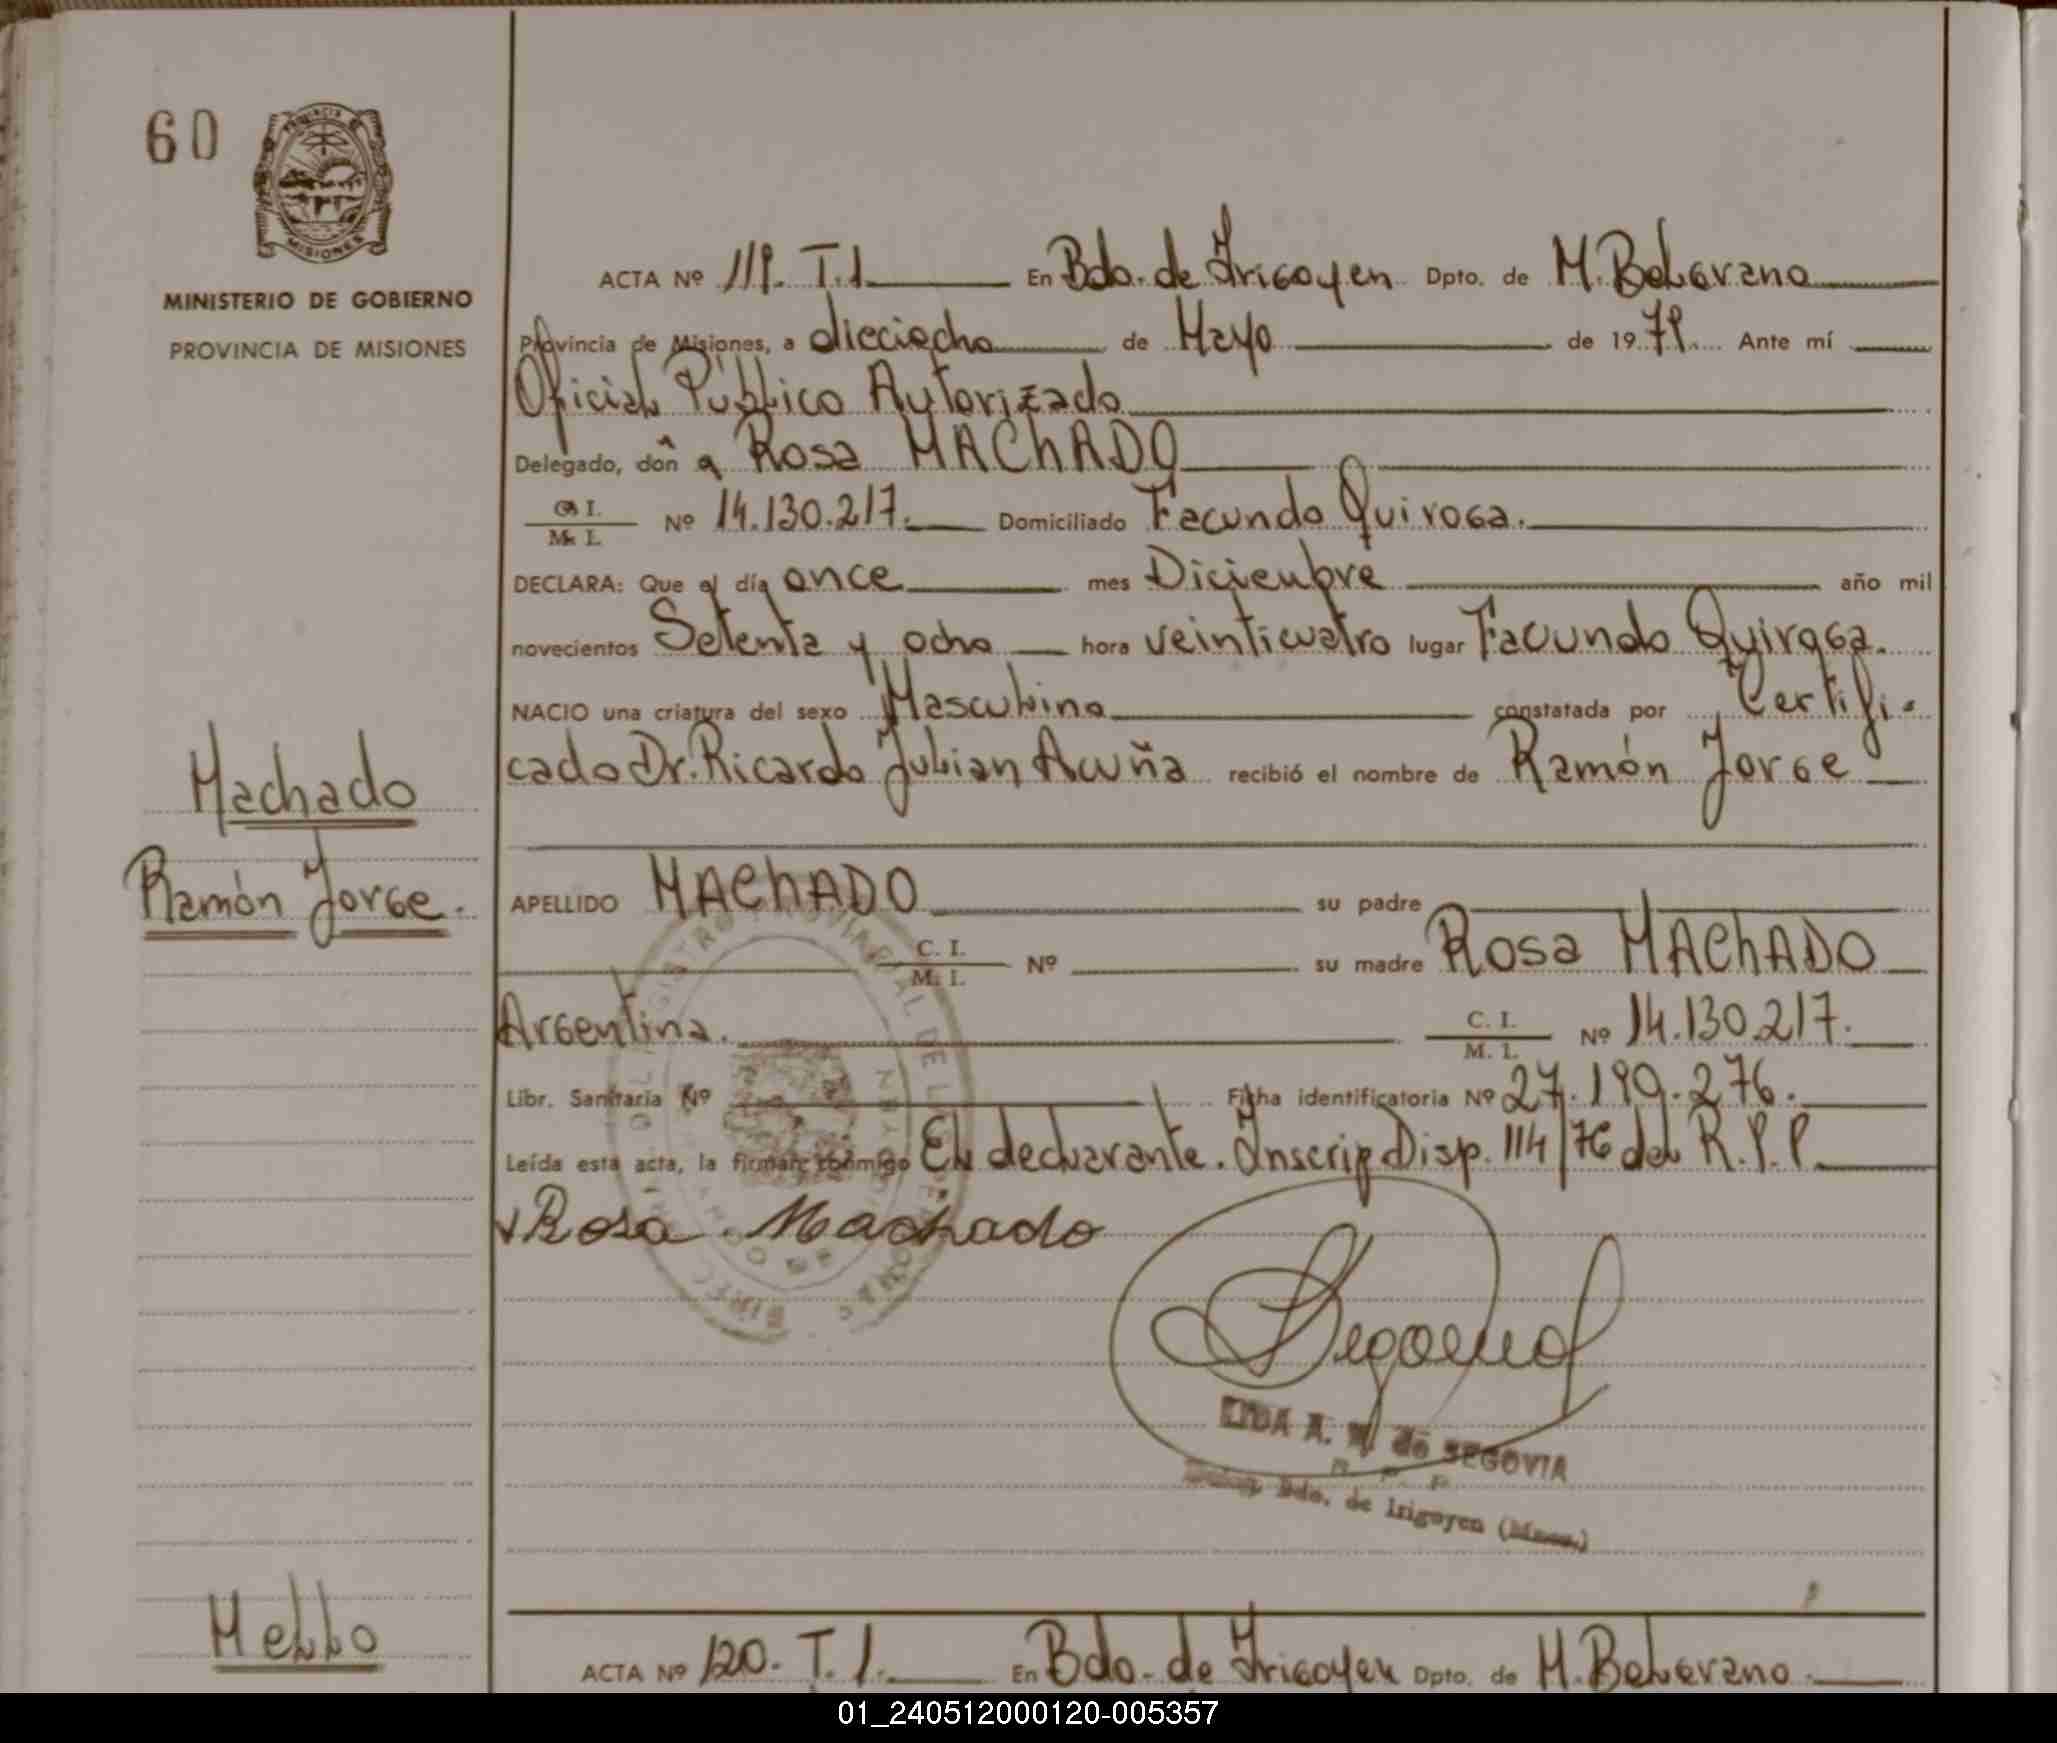 60
PROVINCIA DE
MISIONES
MINISTERIO DE GOBIERNO
PROVINCIA DE MISIONES
ACTA Nº 119. T.1 En Bdo. de Irigoyen Dpto. de M. Belgrano
Provincia de Misiones, a dieciocho de Mayo de 1979. Ante mí
Oficial Público Autorizado
Delegado, doña Rosa MACHADO
C. I.
M. I. Nº 14.130.217. Domiciliado Facundo Quiroga.
DECLARA: Que el día once mes Diciembre año mil
novecientos Setenta y ocho hora veinticuatro lugar Facundo Quiroga.
NACIO una criatura del sexo Masculino constatada por Certifi-
cado Dr. Ricardo Julian Acuña recibió el nombre de Ramón Jorge
Machado
Ramón Jorge.
APELLIDO MACHADO su padre
C. I.
M. I. Nº su madre Rosa MACHADO
Argentina. C. I.
M. I. Nº 14.130.217.
Libr. Sanitaria Nº Ficha identificatoria Nº 27.199.276.
Leída esta acta, la firman conmigo El declarante. Inscrip Disp. 114/76 del R.P.P.
Rosa Machado
Segovia
LIDA A. de SEGOVIA
Bdo. de Irigoyen (Mnes.)
Mello
ACTA Nº 120. T. 1. En Bdo. de Irigoyen Dpto. de M. Belgrano
01_240512000120-005357